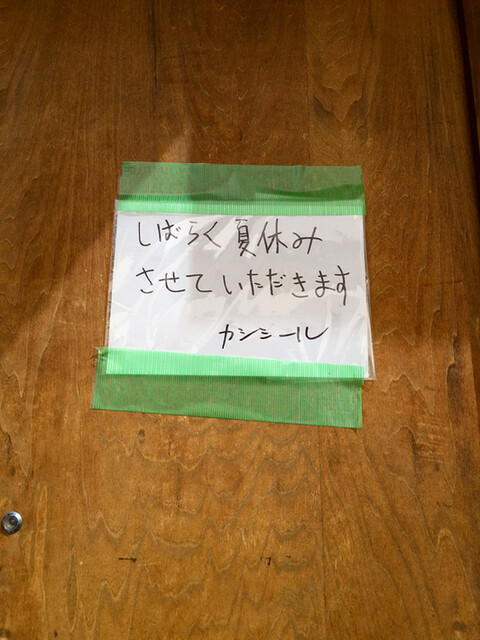 しばらく夏休み
させていただきます
カシシール